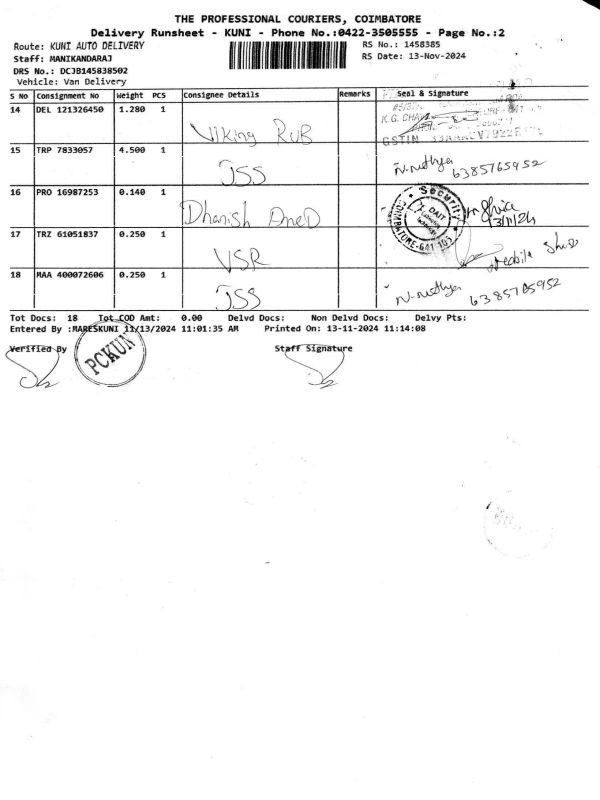 THE PROFESSIONAL COURIERS, COIMBATORE
Delivery Runsheet - KUNI - Phone No.:0422-3505555 - Page No.:2
Route: KUNI AUTO DELIVERY
RS No.: 1458385
Staff: MANIKANDARAJ
RS Date: 13-Nov-2024
DRS No.: DCJB145838502
Vehicle: Van Delivery
S No Consignment No Weight PCS Consignee Details Remarks Seal & Signature
14 DEL 121326450 1.280 1 Viking RUB
K.G. CHAV
GSTIN
15 TRP 7833057 4.500 1 JSS N. Nithya 6385765952
16 PRO 16987253 0.140 1 Dhanish
Security
DAIT
COIMBATORE-641 105
13/11/24
17 TRZ 61051837 0.250 1 VSR
18 MAA 400072606 0.250 1 JSS N. Nithya 6385765952
Tot Docs: 18 Tot COD Amt: 0.00 Delvd Docs: Non Delvd Docs: Delvy Pts:
Entered By :MARESKUNI 11/13/2024 11:01:35 AM Printed On: 13-11-2024 11:14:08
Verified By
Staff Signature
PCKUN